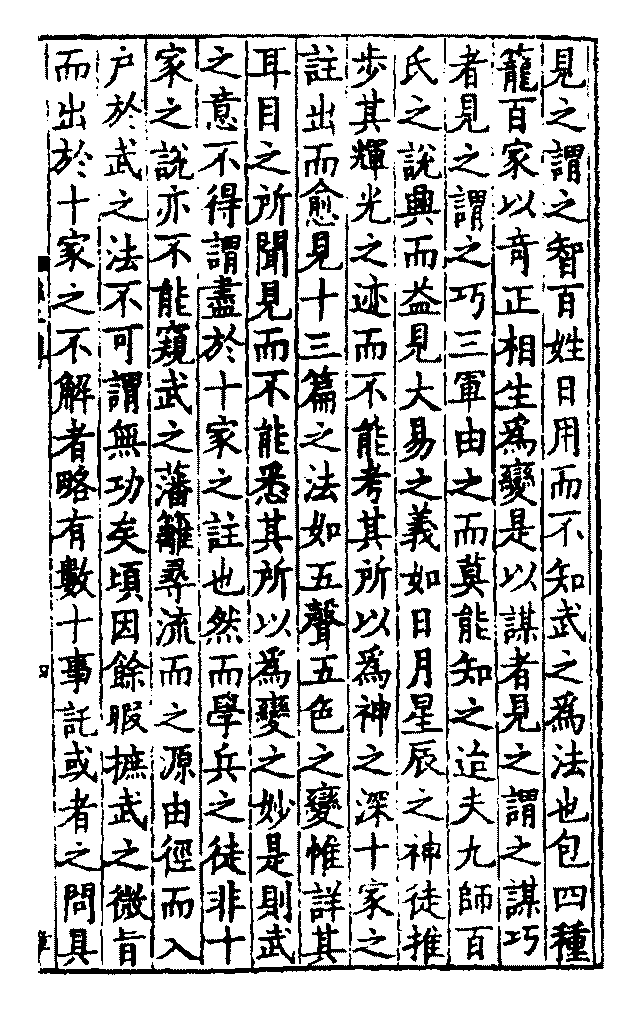 見之謂之智百姓日用而不知武之為法也包四種
籠百家以竒正相生為變是以謀者見之謂之謀巧
者見之謂之巧三軍由之而莫能知之迨夫九師百
氏之說興而益見大易之義如日月星辰之神徒推
步其輝光之迹而不能考其所以為神之深十家之
註出而愈見十三篇之法如五聲五色之變惟詳其
耳目之所聞見而不能悉其所以為變之妙是則武
之意不得謂盡於十家之註也然而學兵之徒非十
家之說亦不能窺武之藩籬尋流而之源由徑而入
户於武之法不可謂無功矣頃因餘暇摭武之微旨
而出於十家之不解者略有數十事託或者之問具